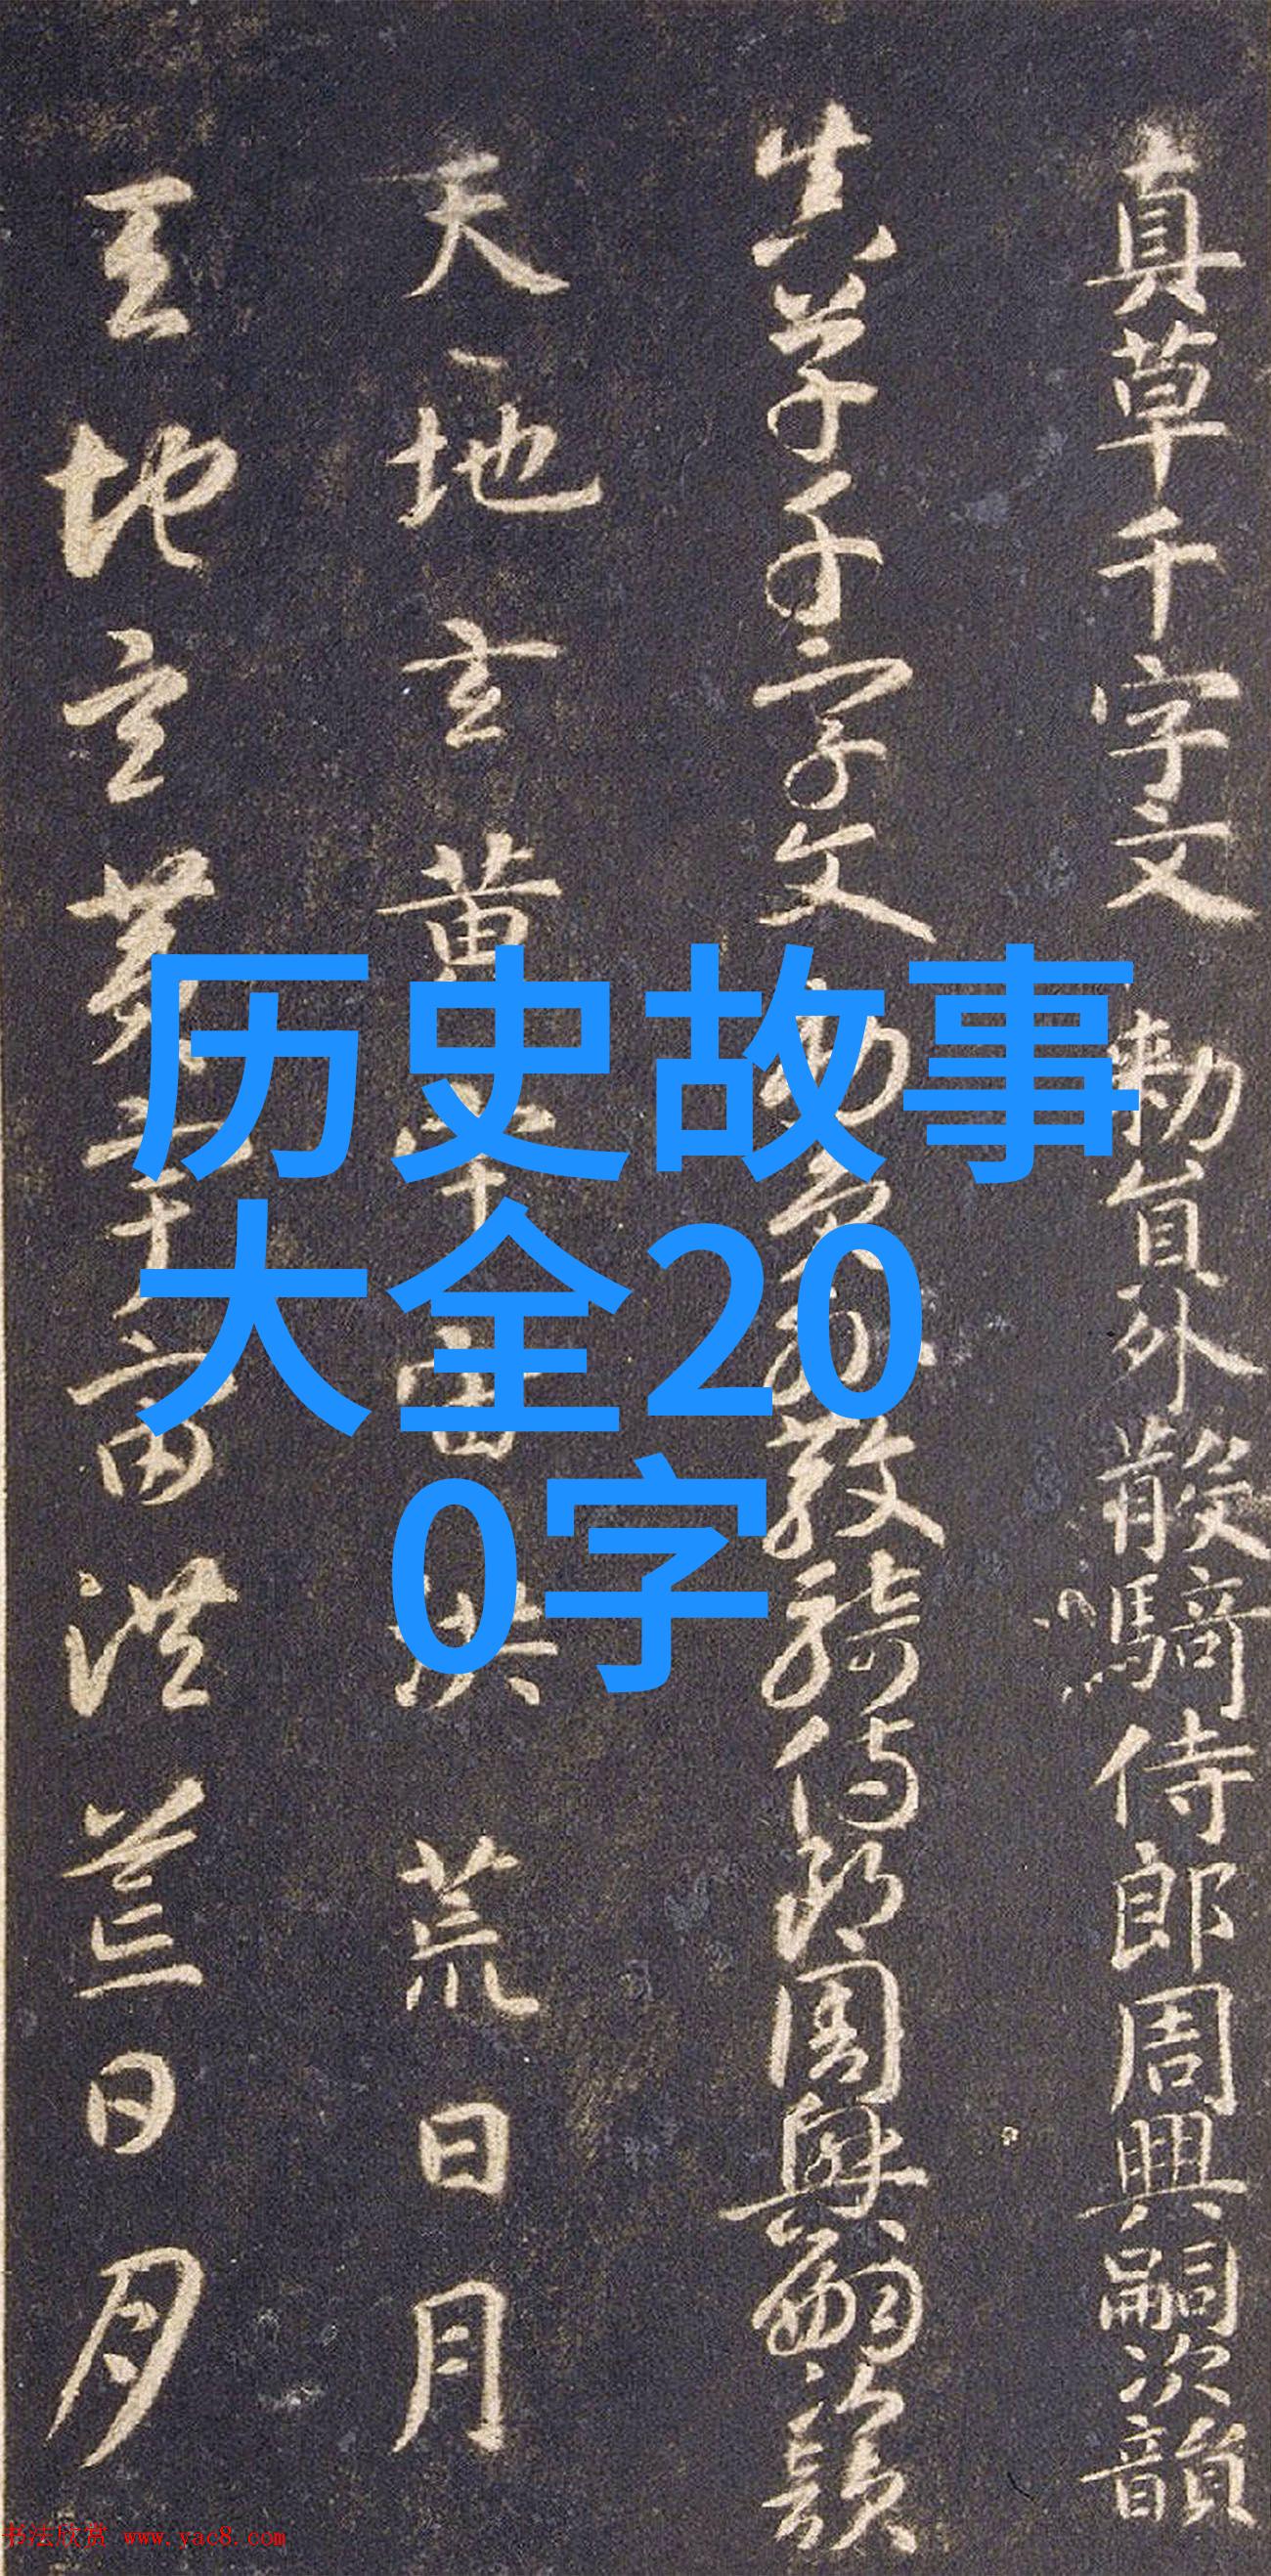 真草千字文 勅員外散騎侍郎周興嗣次韻
真草千字文 勅員外散騎侍郎周興嗣次韻
天地玄黄宇宙洪荒日月
天地玄黄宇宙洪荒日月
历史故事
大全20
0字
书法欣赏 www.yac8.com